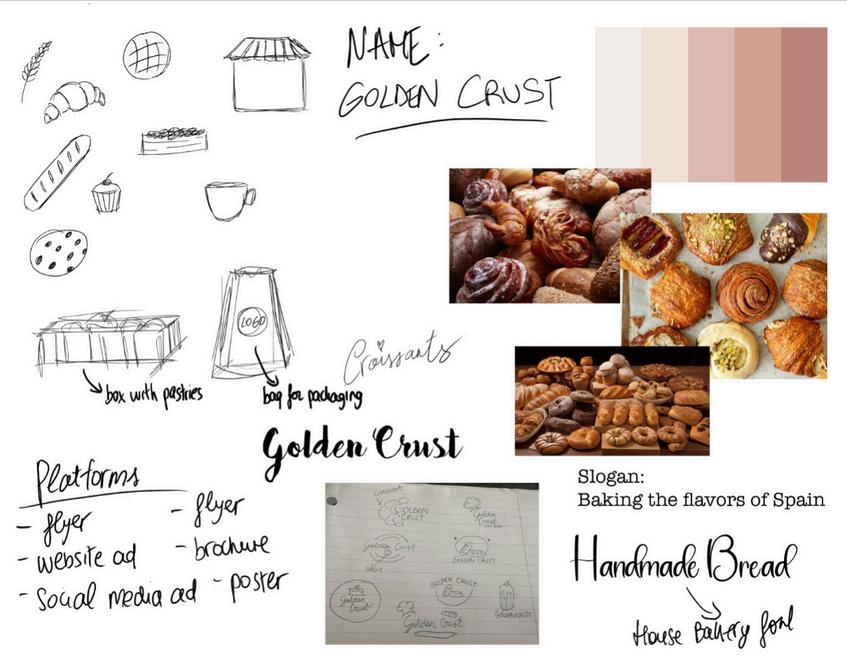 NAME:
GOLDEN CRUST
LOGO
Croissants
box with pastries
bag for packaging
Golden Crust
Platforms
- flyer
- website ad
- social media ad
- flyer
- brochure
- poster
Slogan:
Baking the flavors of Spain
Handmade Bread
House Bakery font
GOLDEN
CRUST
Golden
Crust
Golden Crust
GOLDEN CRUST
Golden
Crust
GOLDEN CRUST
Golden Crust
GOLDEN CRUST